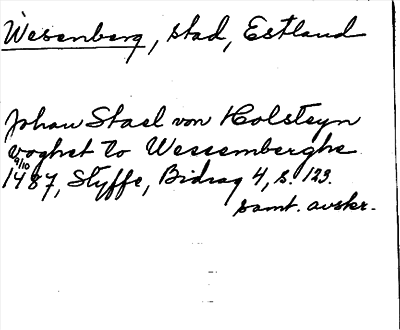 Wesenberg, stad, Estland
Johan Stael von Holsteyn
voghet to Wessemberghe
9/10
1487, Styffe, Bidrag 4, s. 123.
samt. avskr.